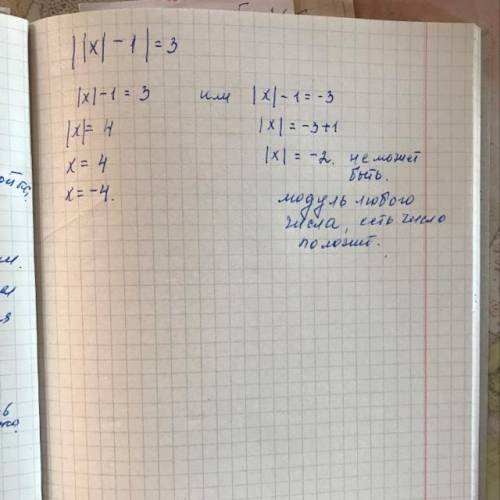 ||x| - 1| = 3
|x| - 1 = 3 или |x| - 1 = -3
|x| = 4
x = 4
x = -4.
|x| = -3+1
|x| = -2. не может
быть.
модуль любого
числа, есть число
положит.